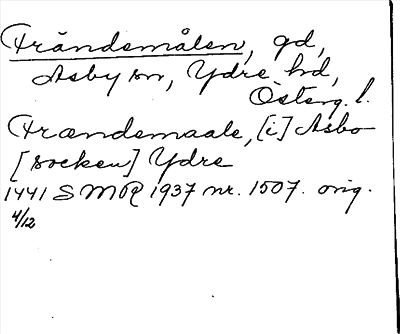 Frändsmålen, gd,
Asby sn, Ydre hd,
Österg. l.
Frændsmaale, [i] Asbo
[socken] Ydre
1441 SMR 1937 nr. 1507. orig.
4/12